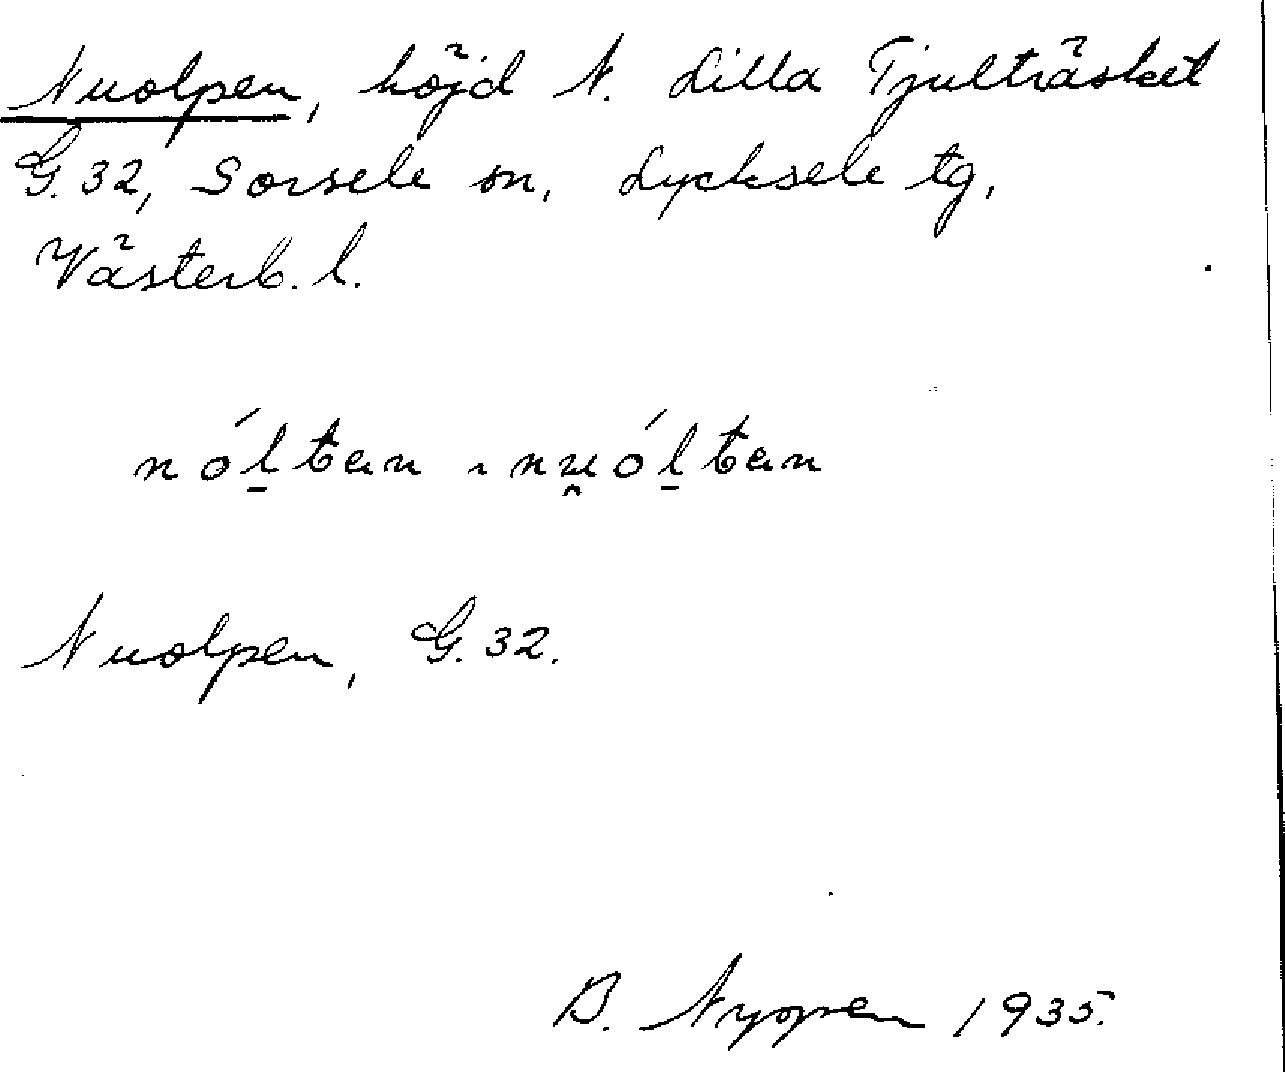 Nuolpen, höjd N. Lilla Tjulträsket
G. 32, Sorsele sn, Lycksele tg,
Västerb. l.
nól̲tɐn ~ nu̯ól̲tɐn
Nuolpen, G. 32.
B. Nyopen 1935.